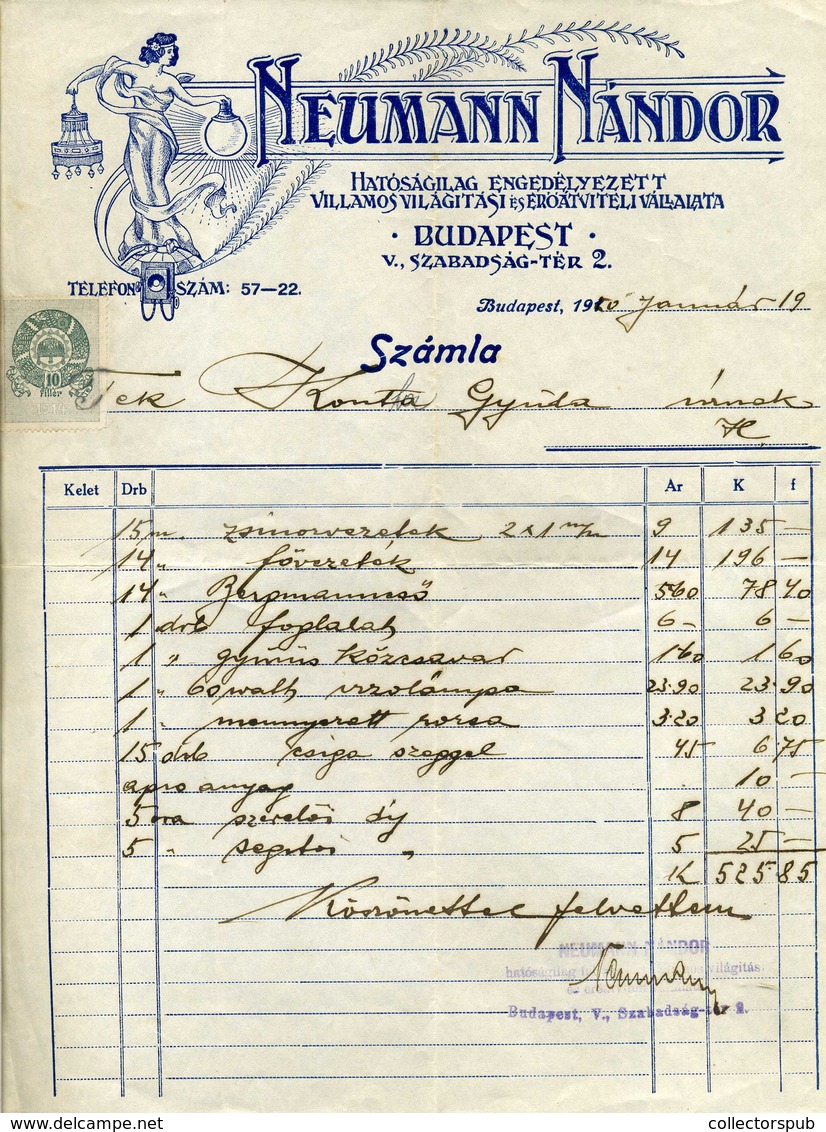 NEUMANN NÁNDOR
HATÓSÁGILAG ENGEDÉLYEZETT
VILLAMOS VILÁGITÁSI ÉS ERŐÁTVITELI VÁLLALATA
· BUDAPEST ·
V., SZABADSÁG-TÉR 2.
TELEFON SZÁM: 57—22.
Budapest, 19 Január 19
Számla
10
fillér
1914
Tek Gyula úrnak
H
Kelet Drb Ar K f
15 m. zsinorvezeték 2x1 m/m 9 135 —
14 „ fővezeték 14 196 —
14 „ Bergmanncső 5·60 78 40
1 drb foglalat 6 — 6 —
1 „ gyűrűs 1·60 1 60
1 „ 60 watt 23·90 23·90
1 „ mennyezett rozsa 3·20 3 20
15 drb csiga szeggel 45 6 75
apro anyag 10 —
5 ora szerelői díj 8 40 —
5 „ segitői „ 5 25 —
K 525 85
Köszönettel felvettem
NEUMANN NÁNDOR
hatóságilag világitás
Budapest, V., Szabadság-tér 2.
delcampe.net
collectorspub